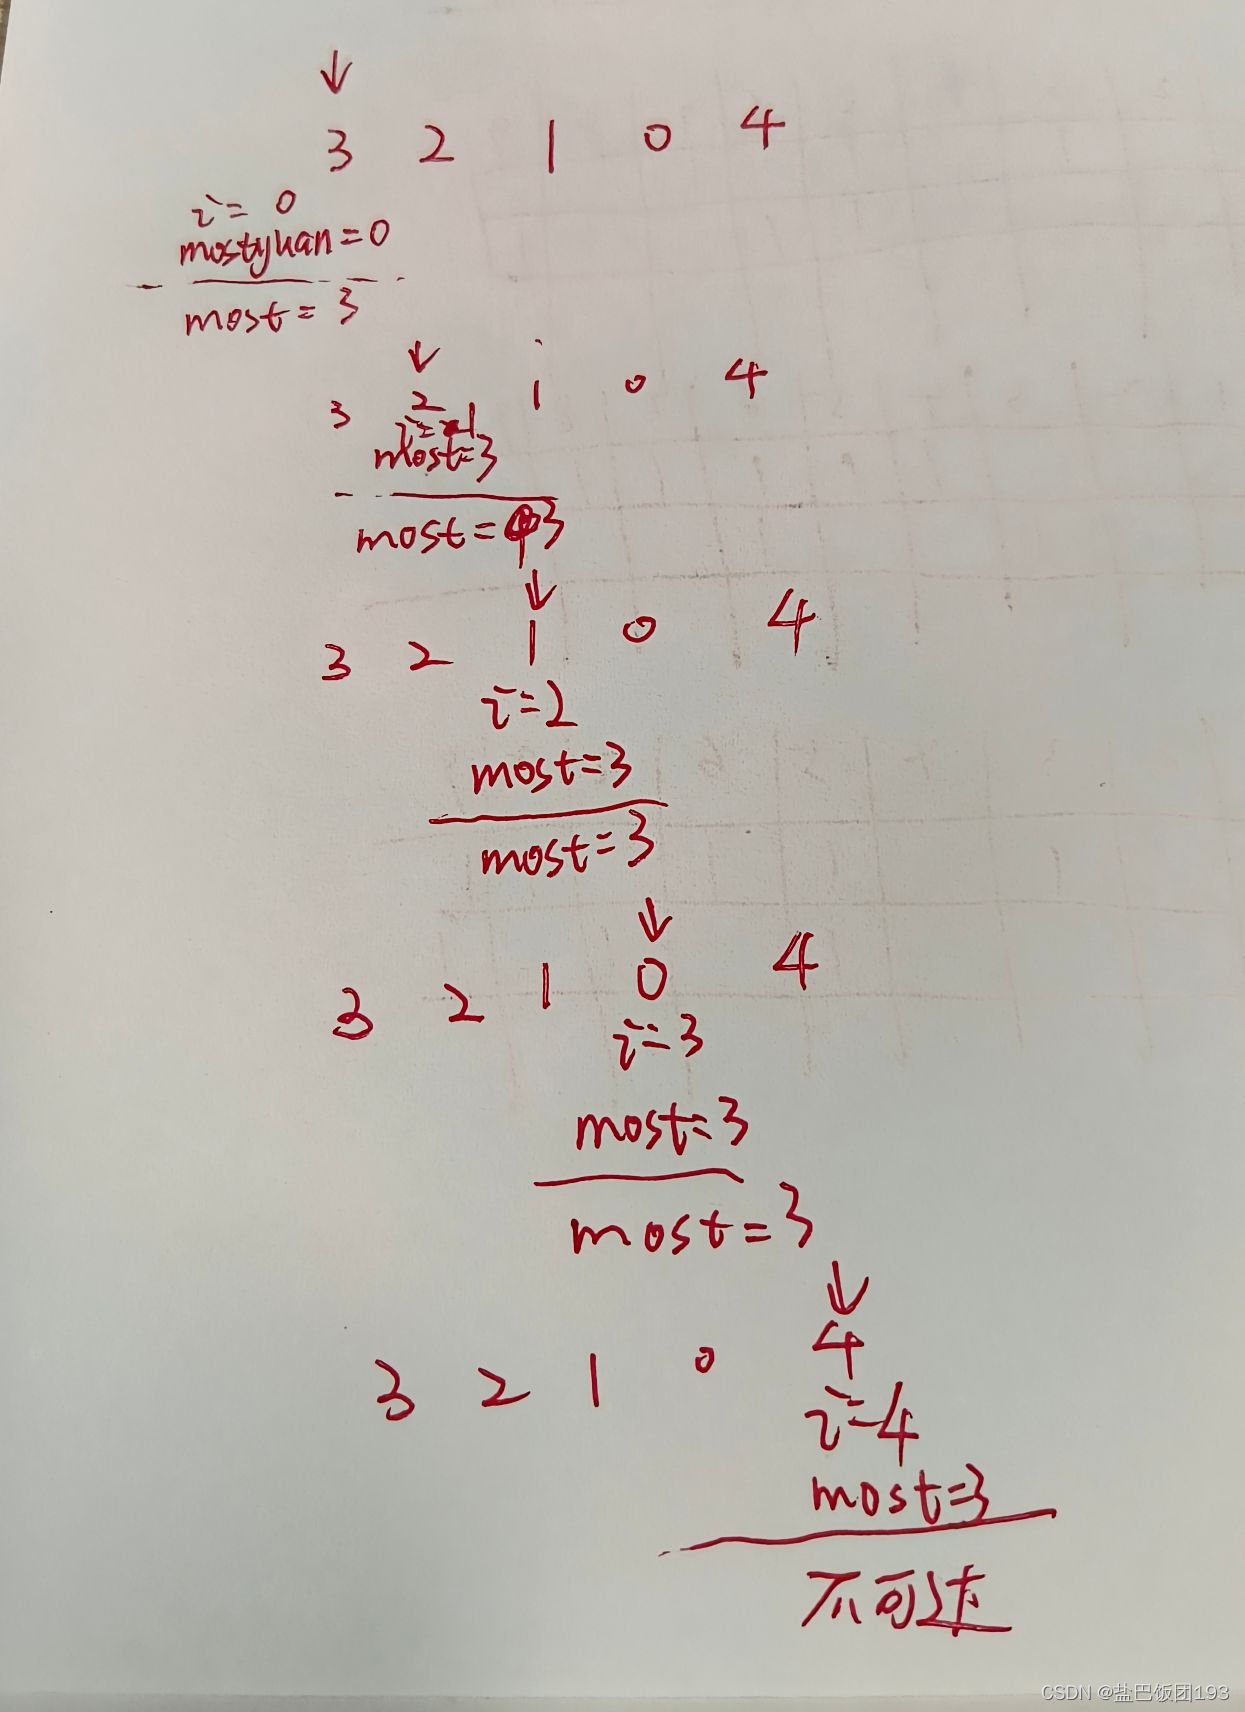 ↓
3 2 1 0 4
i = 0
mostyuan = 0
most = 3
↓
3 2 1 0 4
i = 1
most = 3
most = 3
↓
3 2 1 0 4
i = 2
most = 3
most = 3
↓
3 2 1 0 4
i = 3
most = 3
most = 3
↓
3 2 1 0 4
i = 4
most = 3
不可达
CSDN @盐巴饭团193